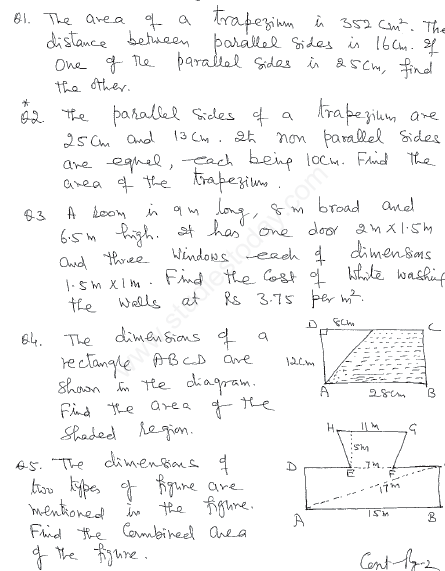 Q1. The area of a trapezium is 352 cm². The
distance between parallel sides is 16 cm. If
one of the parallel sides is 25 cm, find
the other.
*
Q2 The parallel sides of a trapezium are
25 cm and 13 cm. Its non parallel sides
are equal, each being 10 cm. Find the
area of the trapezium.
Q3 A room is 9 m long, 8 m broad and
6.5 m high. It has one door 2 m X 1.5 m
and three windows each of dimensions
1.5 m X 1 m. Find the cost of white washing
the walls at Rs 3.75 per m².
Q4. The dimensions of a
rectangle ABCD are
shown in the diagram.
Find the area of the
shaded region.
D 8cm C
12cm
A 28cm B
Q5. The dimensions of
two types of figure are
mentioned in the figure.
Find the Combined area
of the figure.
H 11 m G
5m
D E 7m F
17m
A 15m B
Cont-Pg-2
www.studiestoday.com